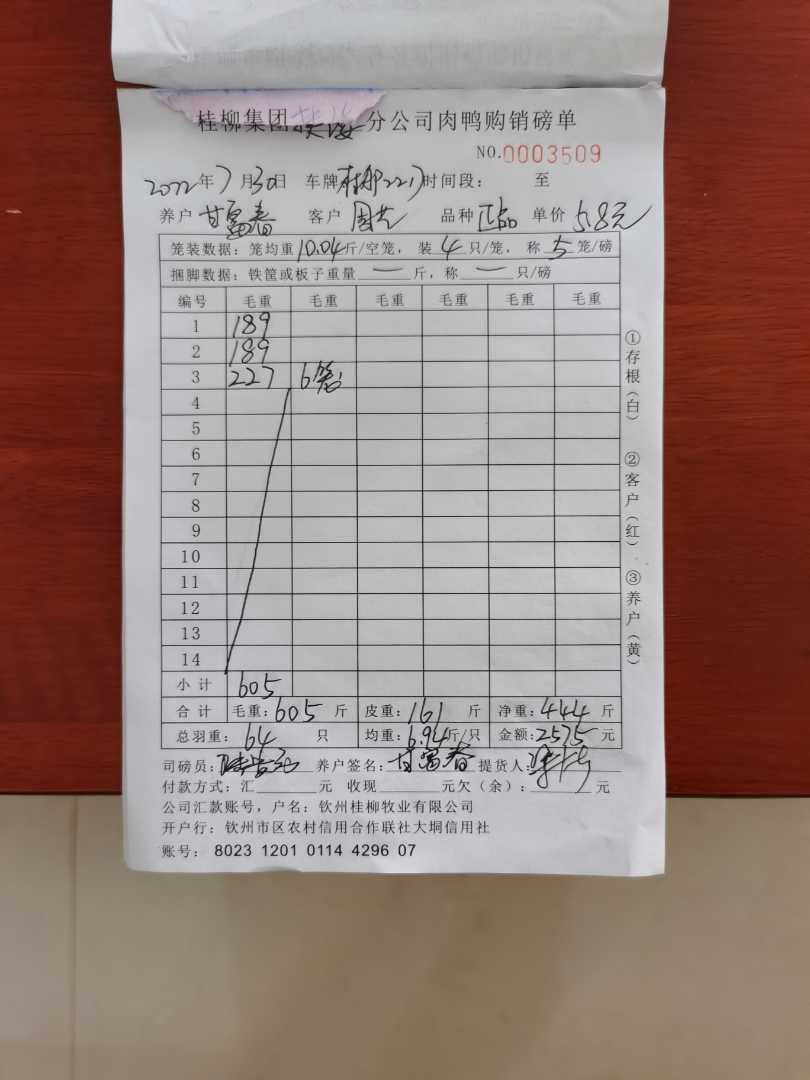 桂柳集团 分公司肉鸭购销磅单
NO.0003509
2022年7月30日 车牌桂柳2217时间段： 至
养户甘富春 客户 品种正品 单价5.8元
笼装数据：笼均重10.04斤/空笼，装4只/笼，称5笼/磅
捆脚数据：铁筐或板子重量—斤，称—只/磅
编号 毛重 毛重 毛重 毛重 毛重 毛重
1 189
2 189
3 227 6笼
4
5
6
7
8
9
10
11
12
13
14
小计 605
合计 毛重：605斤 皮重：161斤 净重：444斤
总羽重：64只 均重：6.94斤/只 金额：2575元
司磅员： 养户签名：甘富春 提货人：
付款方式：汇 元 收现 元欠（余）： 元
公司汇款账号，户名：钦州桂柳牧业有限公司
开户行：钦州市区农村信用合作联社大垌信用社
账号： 8023 1201 0114 4296 07
①存根（白）
②客户（红）
③养户（黄）